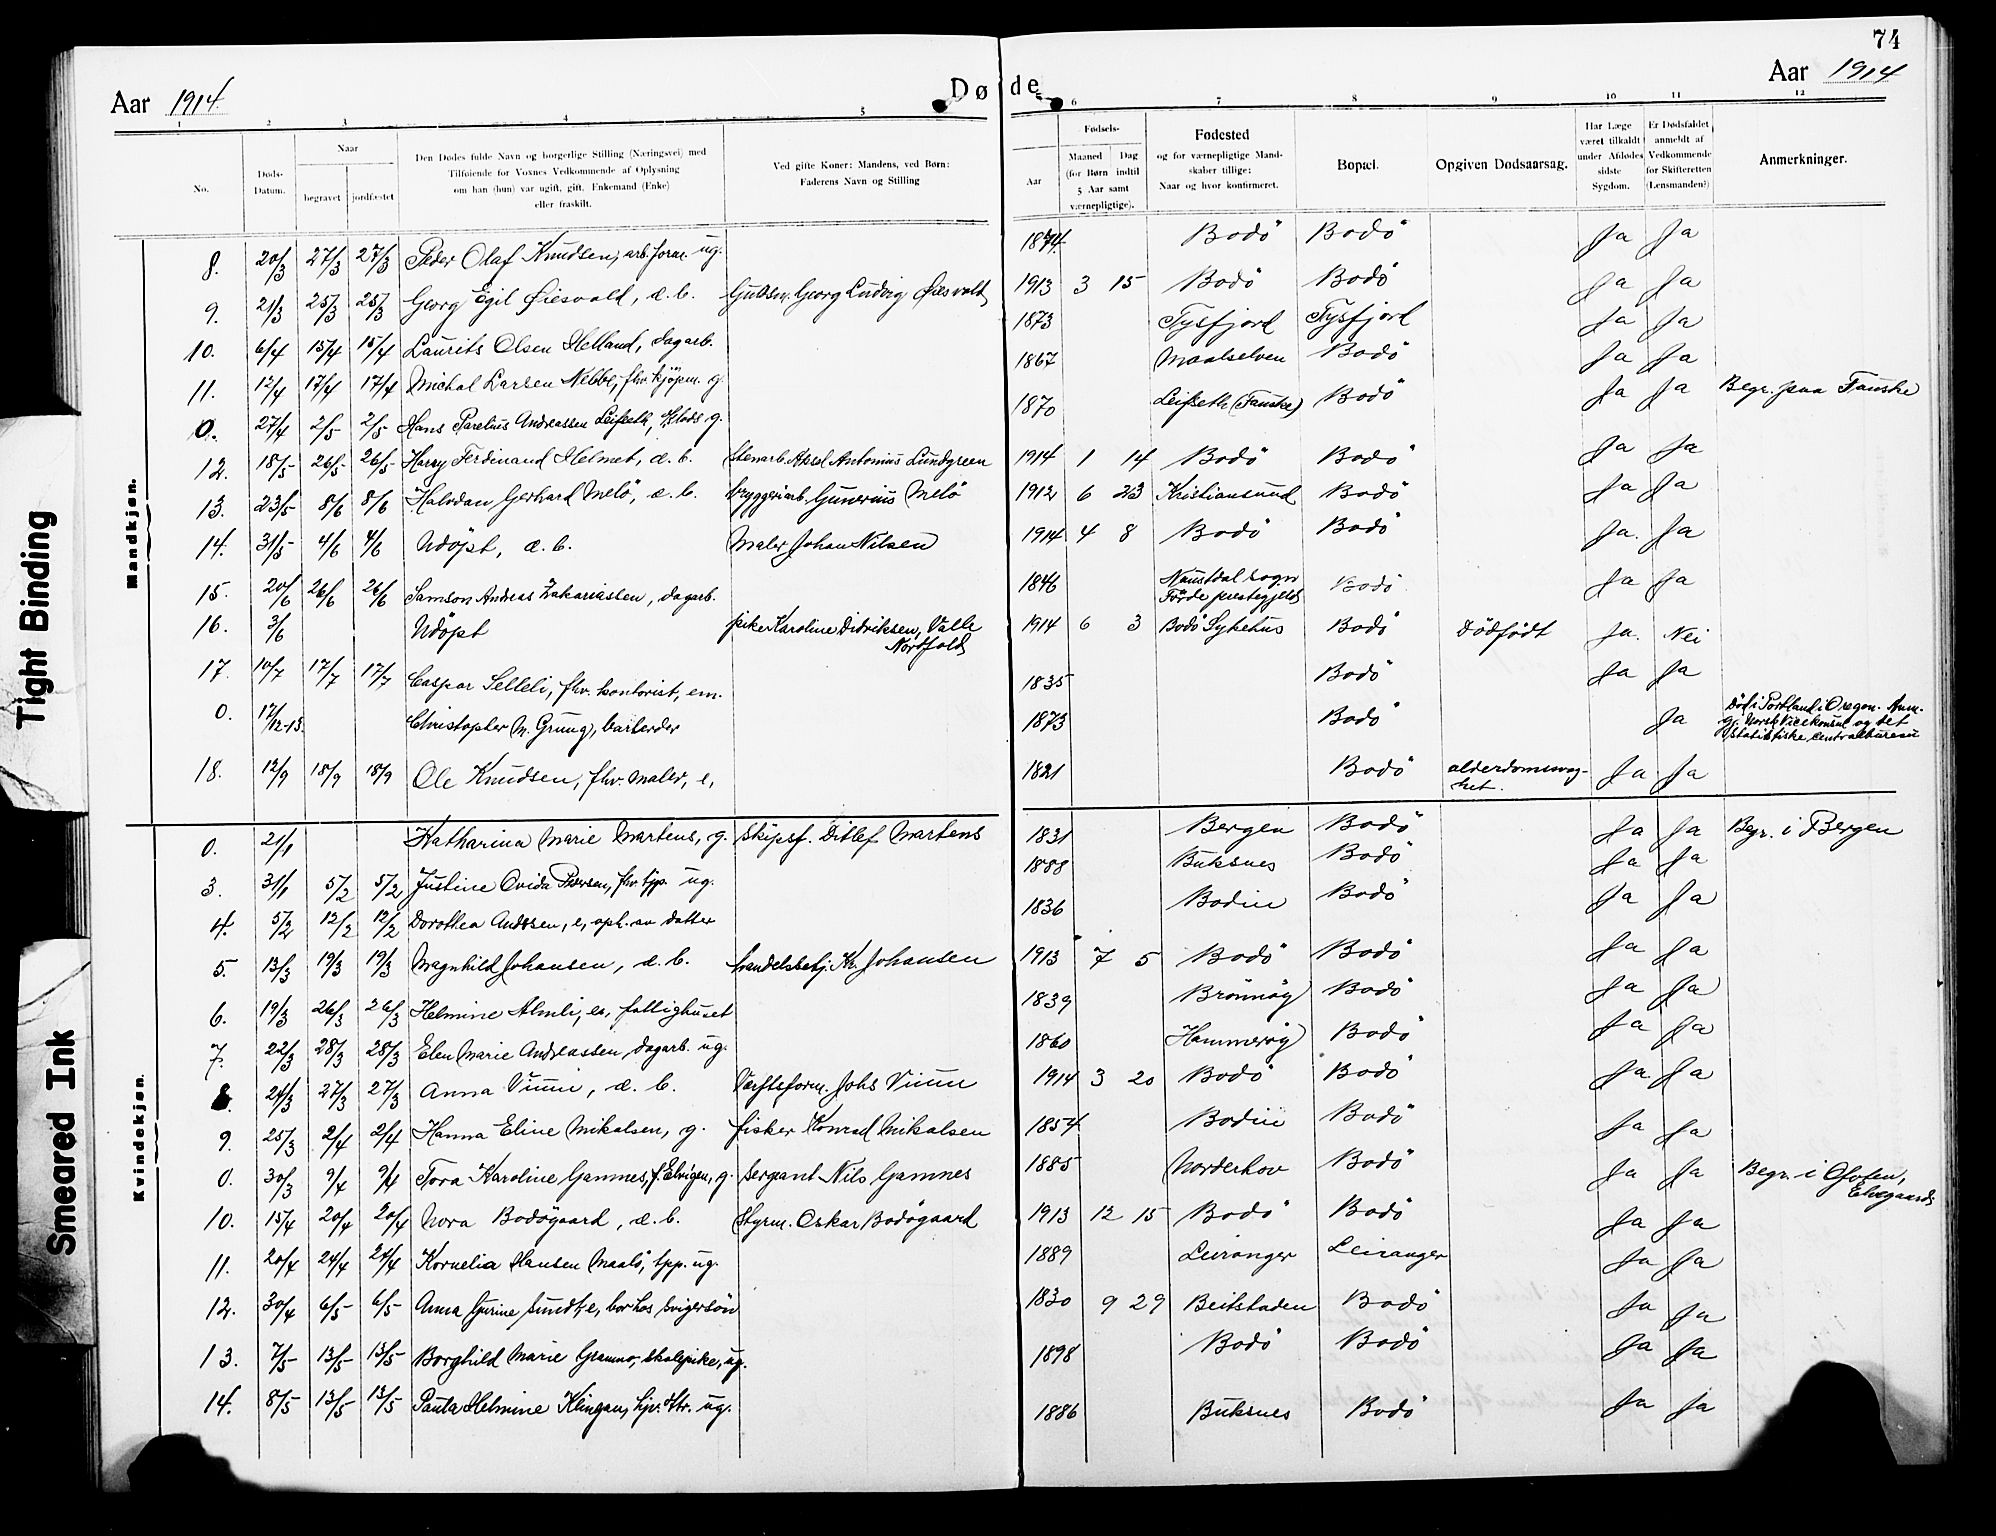 74
Aar 1914.
Døde
Aar 1914
1 2 3 4 5 6 7 8 9 10 11 12
No.
Døds-
Datum.
Naar
begravet jordfæstet
Den Dødes fulde Navn og borgerlige Stilling (Næringsvei) med
Tilføiende for Voxnes Vedkommende af Oplysning
om han (hun) var ugift, gift, Enkemand (Enke)
eller fraskilt.
Ved gifte Koner: Mandens, ved Børn:
Faderens Navn og Stilling
Fødsels-
Aar
Maaned Dag
(for Børn indtil
5 Aar samt
værnepligtige).
Fødested
og for værnepligtige Mand-
skaber tillige:
Naar og hvor konfirmeret.
Bopæl.
Opgiven Dødsaarsag.
Har Læge
været tilkaldt
under Afdødes
sidste
Sygdom.
Er Dødsfaldet
anmeldt af
Vedkommende
for Skifteretten
(Lensmanden?)
Anmerkninger.
Mandkjøn.
8. 20/3 27/3 27/3 Peder Olaf Knudsen, arb.form. ug. 1874. Bodö Bodö Ja Ja
9. 21/3 25/3 25/3 Georg Egil Øiesvold, æ. b. Gulsm. Georg Ludvig Øiesvold 1913 3 15 Bodö Bodö Ja Ja
10. 6/4 15/4 15/4 Laurits Olsen Helland, dagarb. 1873 Tysfjord Tysfjord Ja Ja
11. 12/4 17/4 17/4 Michal Larsen Nebbe, fhv. kjöpm. g. 1867 Maalselven Bodö Ja Ja
0. 27/4 2/5 2/5 Hans Parelius Andreassen Leifseth, g. 1870 Leifseth (Fauske) Bodö Ja Ja Begr. paa Fauske
12. 18/5 26/5 26/5 Harry Ferdinand Helmet, æ. b. Stenarb. Aksel Antonius Lundgreen 1914 1 14 Bodö Bodö Ja Ja
13. 23/5 8/6 8/6 Halvdan Gerhard Melö, æ. b. bryggeriarb. Gunerius Melö 1912 6 23 Kristiansund Bodö Ja Ja
14. 31/5 4/6 4/6 Udöpt, æ. b. Maler Johan Nilsen 1914 4 8 Bodö Bodö Ja. Ja
15. 20/6 26/6 26/6 Samson Andreas Zakariassen, dagarb. 1846 Naustdal sogn
Förde prestegjeld Bodö Ja Ja
16. 3/6 Udöpt pike Karoline Didriksen, Valle
Nordfold 1914 6 3 Bodö Sykehus Bodö Dödfödt Ja. Nei
17. 10/7 17/7 17/7 Caspar Selleli, fhv. kontorist, em. 1835 Bodö Ja Ja
0. 17/12-13. Christopher M. Grung, bartender 1873 Bodö Ja Död i Portland i Oregon. Anm.
gj. Norsk Vicekonsul og det
statistiske centralbureau
18. 12/9 18/9 18/9 Ole Knudsen, fhv. maler, e, 1821 Bodö alderdomssvag-
het. Ja Ja
Kvindekjøn.
0. 21/1 Katharina Marie Martens, g. skipsf. Ditlef Martens 1831 Bergen Bodö Ja Ja Begr. i Bergen
3. 31/1 5/2 5/2 Justine Ovida Pedersen, fhv. tjp. ug. 1888 Buksnes Bodö Ja Ja
4. 5/2 12/2 12/2 Dorothea Andersen, e, oph. av datter 1836 Bodin Bodö Ja Ja
5. 13/3 19/3 19/3 Magnhild Johansen, æ. b. handelsbetj. Kr. Johansen 1913 7 5 Bodö Bodö Ja Ja
6. 19/3 26/3 26/3 Helmine Almli, e, fattighuset 1839 Brönnöy Bodö Ja Ja
7. 22/3 28/3 28/3 Elen Marie Andreassen, dagarb. ug. 1860 Hammeröy Bodö Ja Ja
8. 24/3 27/3 27/3 Anna Vinni, æ. b. Værftsform. Johs Vinni 1914 3 20 Bodö Bodö Ja. Ja
9. 25/3 2/4 2/4 Hanna Eline Mikalsen, g. fisker Konrad Mikalsen 1854 Bodin Bodö Ja Ja
0. 30/3 9/4 9/4 Tora Karoline Gamnes, f. Elvigen, g. sergeant Nils Gamnes 1885 Norderhov Bodö Ja Ja Begr. i Ofoten,
Elvegaards
10. 15/4 20/4 20/4 Nora Bodögaard, æ. b. Styrm. Oskar Bodögaard 1913 12 15 Bodö Bodö Ja Ja
11. 20/4 24/4 24/4 Kornelia Hansen Maalö, tpp. ug. 1889 Leiranger Leiranger Ja Ja
12. 30/4 6/5 6/5 Anna Gurine Sundt, e, bor hos svigersön 1830 9 29 Beitstaden Bodö Ja Ja
13. 7/5 13/5 13/5 Borghild Marie Gramno, skolepike, ug. 1898 Bodö Bodö Ja Ja
14. 8/5 13/5 13/5 Paula Helmine Klingan, hjv. dtr. ug. 1886 Buksnes Bodö Ja Ja
Tight Binding
Smeared Ink